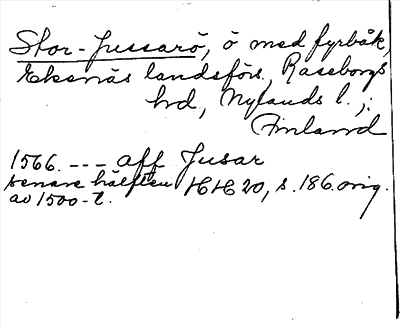 Stor-Jussarö, ö med fyrbåk,
Ekenäs landsförs., Raseborgs
hd, Nylands l.;
Finland
1566. --- aff Jusar
senare hälften HH 20, s. 186. orig.
av 1500-t.